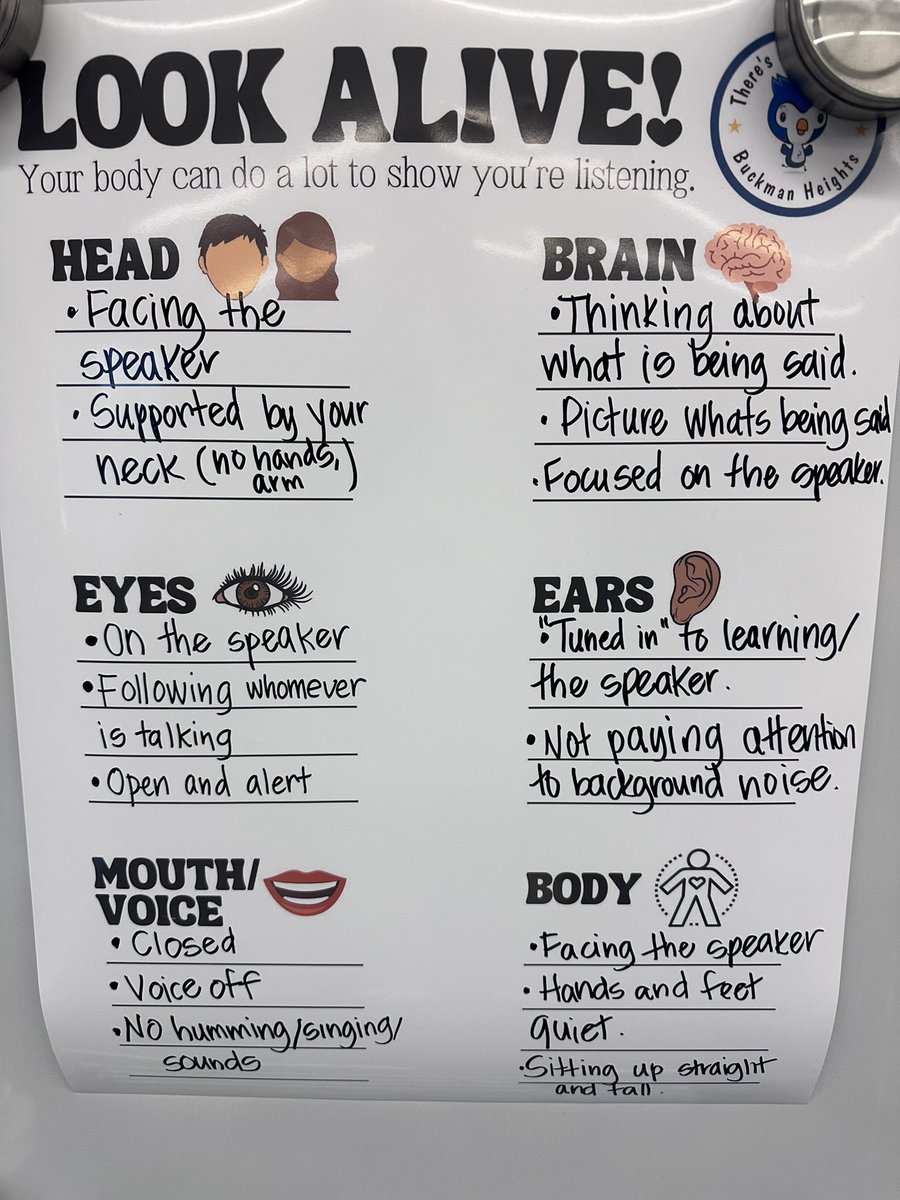 LOOK ALIVE!
Your body can do a lot to show you're listening.
There's
Buckman Heights
HEAD
• Facing the
speaker
• Supported by your
neck (no hands,)
arm
BRAIN
• Thinking about
what is being said.
• Picture whats being said
• Focused on the speaker.
EYES
• On the speaker
• Following whomever
is talking
• Open and alert
EARS
• "Tuned in" to learning/
the speaker.
• Not paying attention
to background noise.
MOUTH/
VOICE
• Closed
• Voice off
• No humming/singing/
sounds
BODY
• Facing the speaker
• Hands and feet
quiet.
• Sitting up straight
and tall.